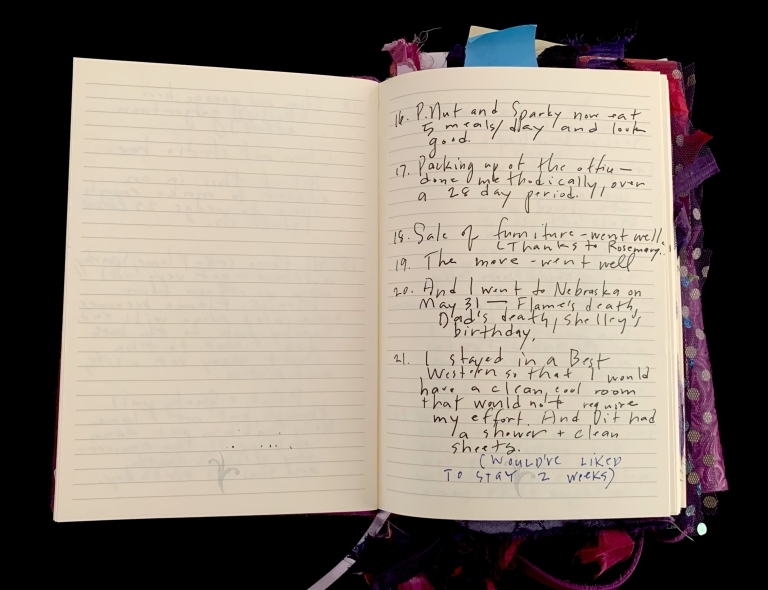 16. P.Nut and Sparky now eat
5 meals/day and look
good.
17. Packing up of the office—
done methodically, over
a 28 day period.
18. Sale of furniture - went well.
(Thanks to Rosemary.)
19. The move - went well
20. And I went to Nebraska on
May 31 — Flame's death,
Dad's death, Shelley's
birthday.
21. I stayed in a Best
Western so that I would
have a clean, cool room
that would not require
my effort. And it had
a shower + clean
sheets.
(WOULD'VE LIKED
TO STAY 2 WEEKS)